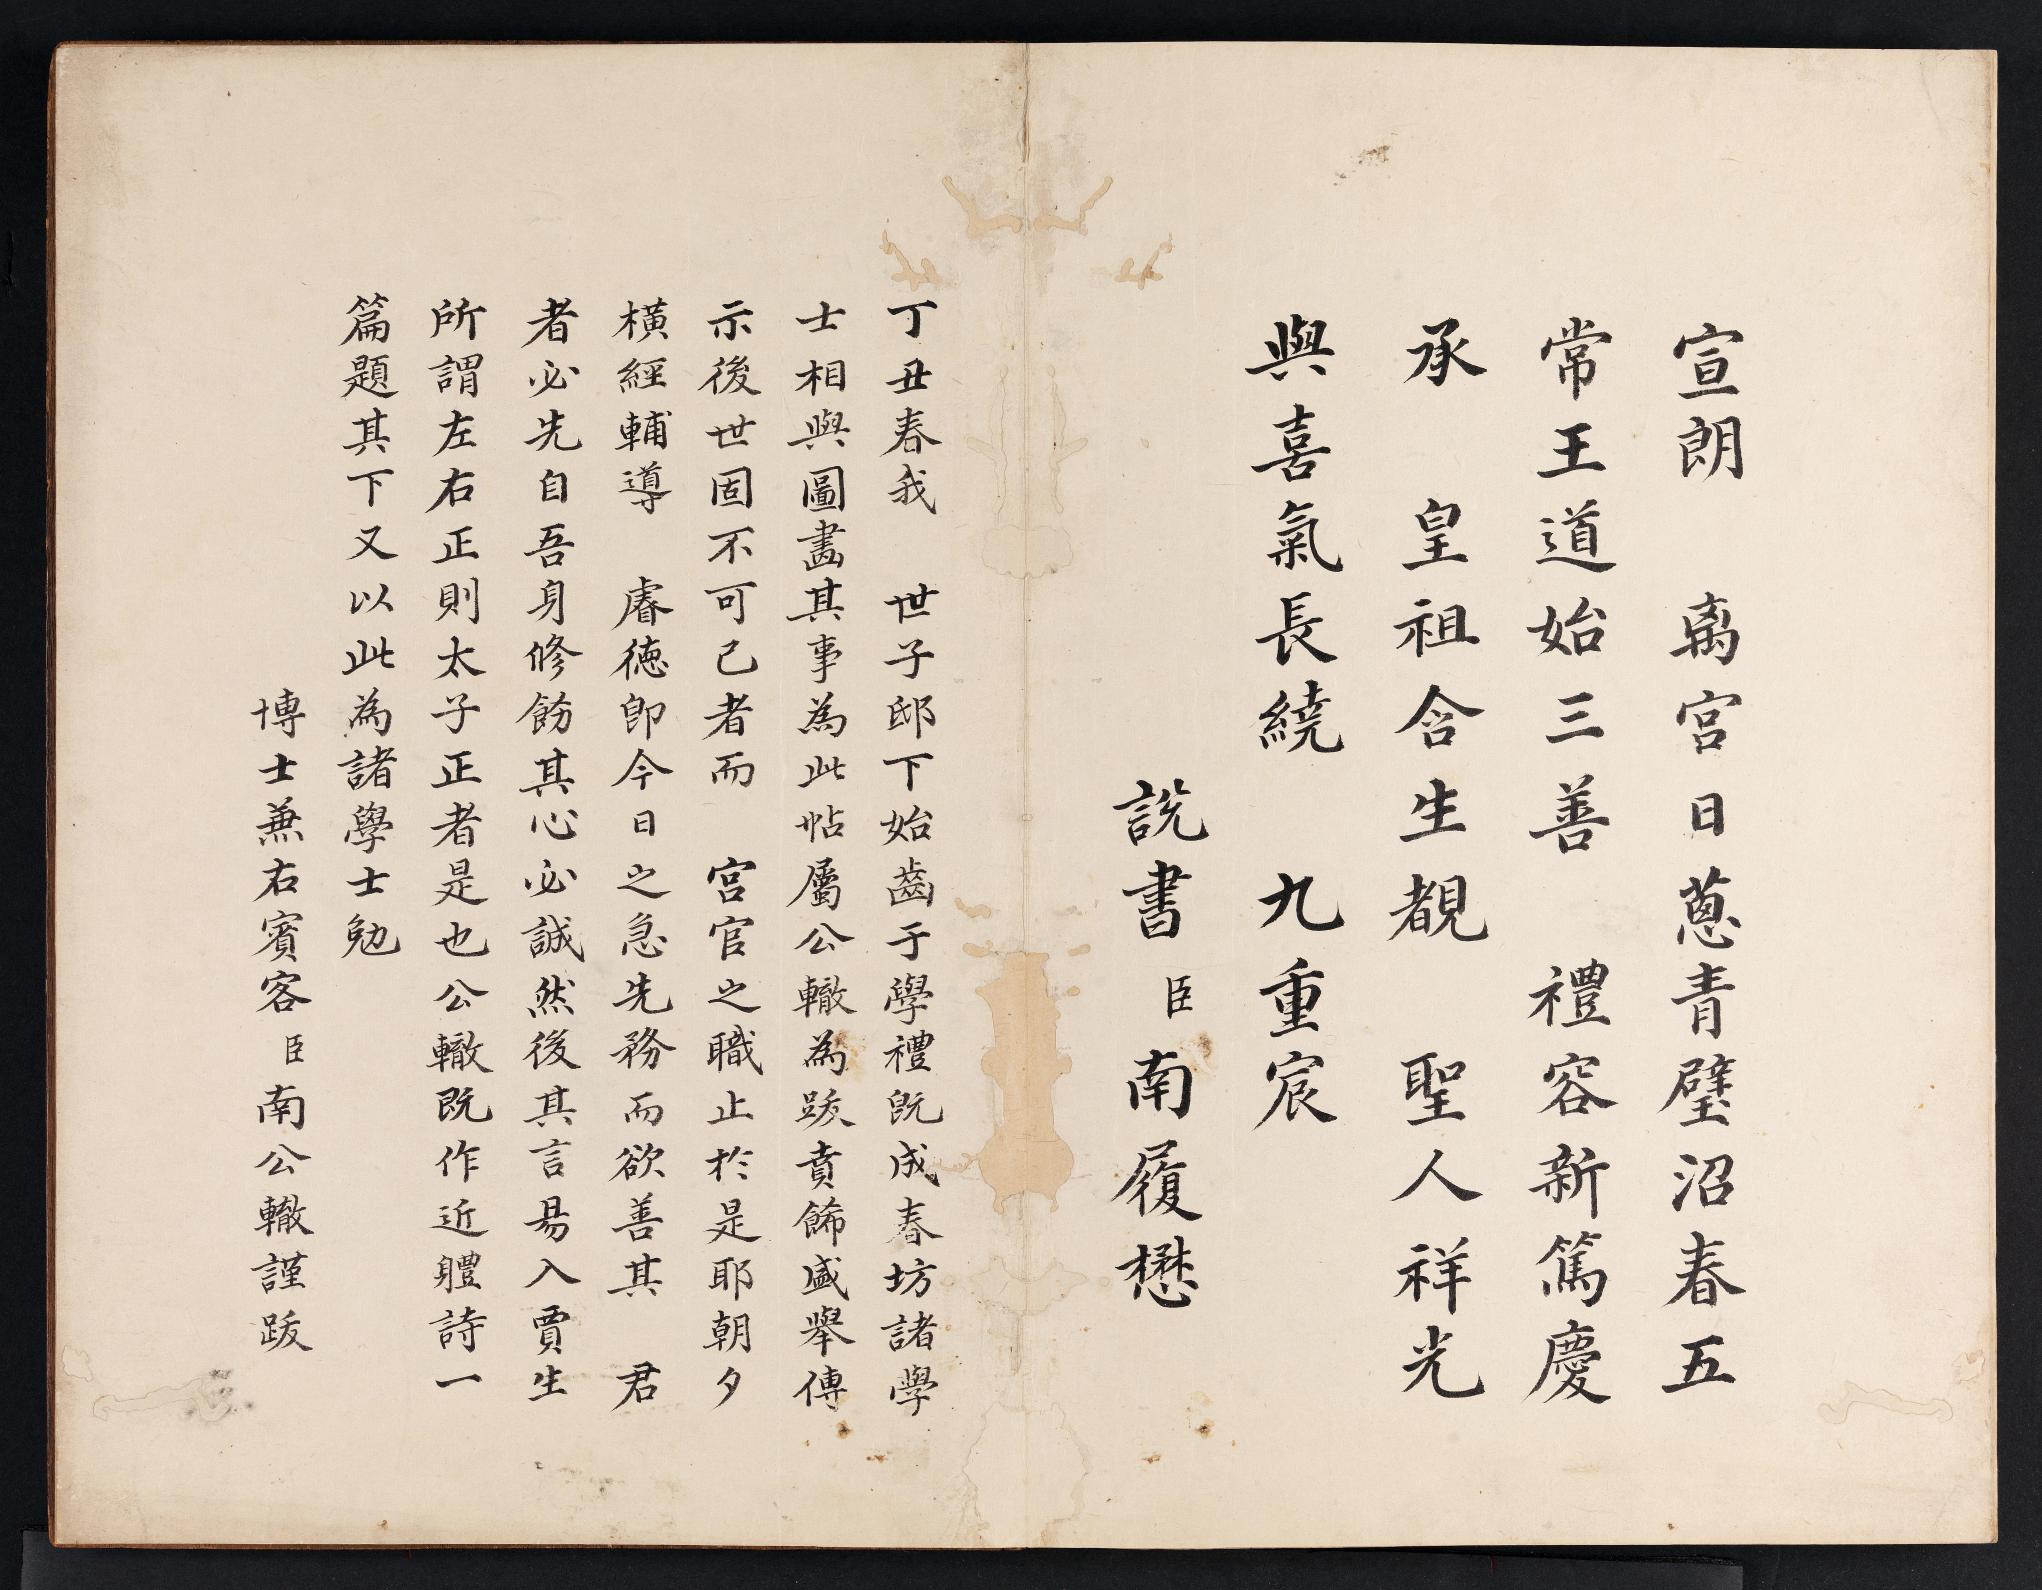 宣朗　离宮日蔥青璧沼春五
常王道始三善　禮容新篤慶
承　皇祖含生覩　聖人祥光
與喜氣長繞　九重宸
說書臣南履懋
丁丑春我　世子邸下始齒于學禮旣成春坊諸學
士相與圖畵其事為此帖屬公轍為跋賁餙盛擧傳
示後世固不可已者而　宮官之職止於是耶朝夕
橫經輔導　睿德卽今日之急先務而欲善其　君
者必先自吾身修飭其心必誠然後其言易入賈生
所謂左右正則太子正者是也公轍既作近軆詩一
篇題其下又以此為諸學士勉
博士兼右賓客臣南公轍謹跋